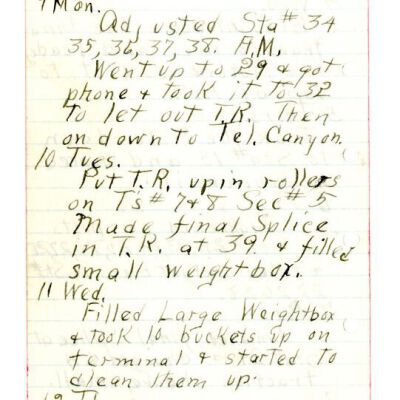 9 Mon.
Adjusted Sta # 34
35, 36, 37, 38. A.M.
Went up to 29 & got
phone & took it to 32
to let out T.R. Then
on down to Tel. Canyon.
10 Tues.
Put T.R. up in rollers
on T's # 7 & 8 Sec # 5
Made final Splice
in T.R. at 39 & filled
small weightbox.
11 Wed.
Filled Large Weightbox
& took 10 buckets up on
terminal & started to
clean them up.